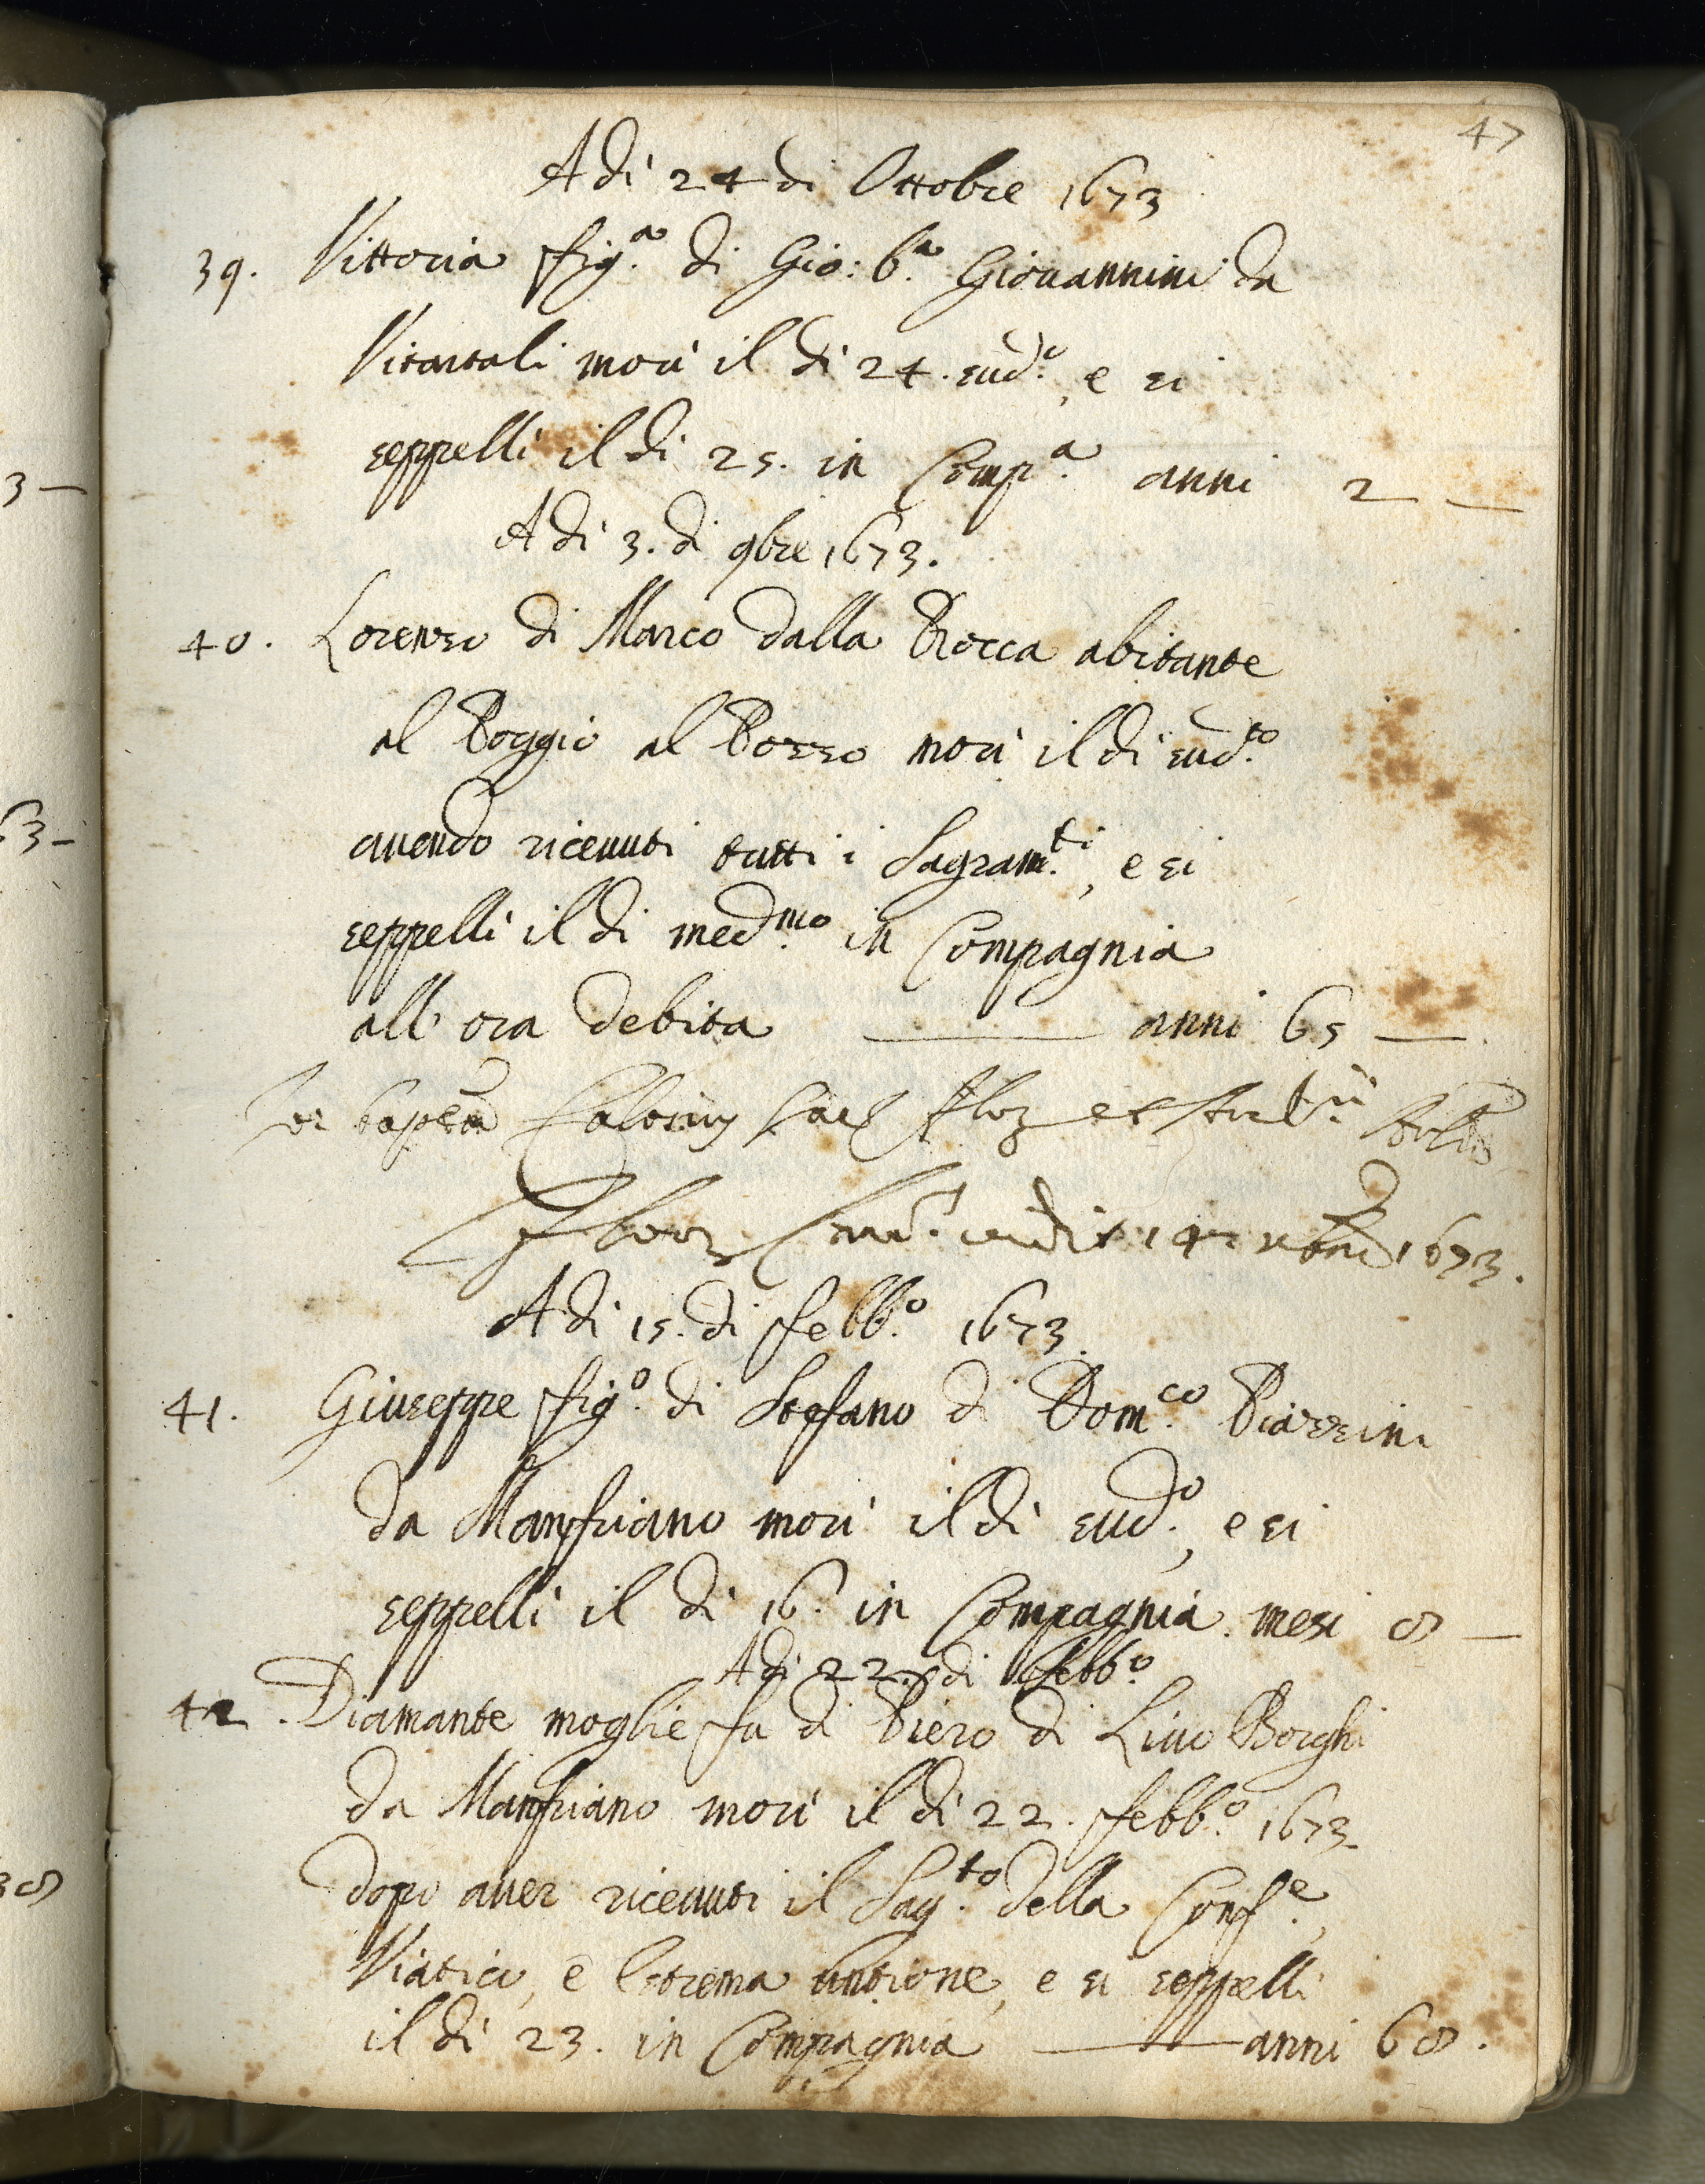 47
Adi 24 di Ottobre 1673
39. Vittoria fig.a di Gio: b.a Giouannini da
Vitartali morì il dì 24. sud.o, e si
seppellì il dì 25. in Comp.a anni 2
Adi 3. di 9bre 1673.
40. Lorenzo di Marco dalla Rocca abitante
al Poggio al Pozzo morì il dì sud.to
auendo ricevuti tutti i Sagram.ti, e si
seppellì il dì med.mo in Compagnia
all' ora debita anni 65
1673.
Adi 15. di febb.o 1673
41. Giuseppe fig.o di Stefano di Dom.co Piazzini
da Manfriano morì il dì sud.o, e si
seppellì il dì 16. in Compagnia. mesi 8
Adi 22. di febb.o
42. Diamante moglie fu di Piero di Liuo Borghi
da Manfriano morì il dì 22. febb.o 1673
dopo auer riceuuti il Sag.to della Conf.e,
Viatico, e lestrema untione, e si seppelli
il dì 23. in Compagnia anni 68.
3
63
38